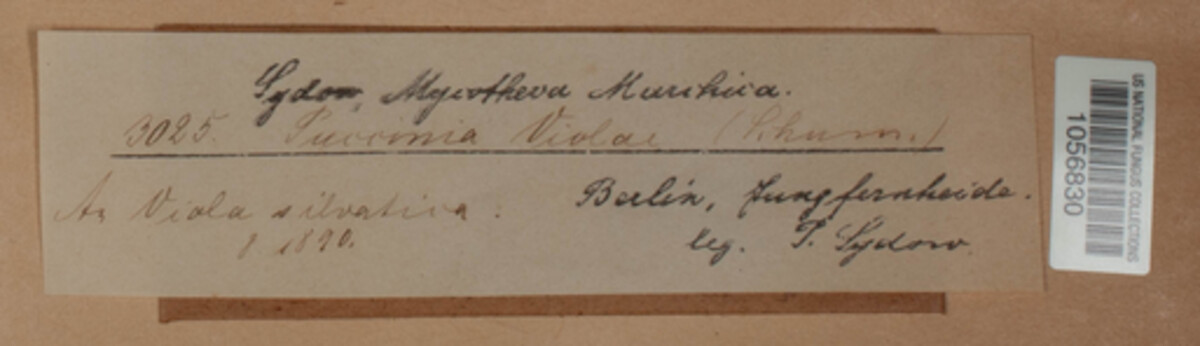 Sydow, Mycotheca Marchica.
3025. Puccinia Violae (Schum.)
An Viola silvatica.
8 1890.
Berlin, Jungfernheide.
leg. P. Sydow.
US NATIONAL FUNGUS COLLECTIONS
1056830